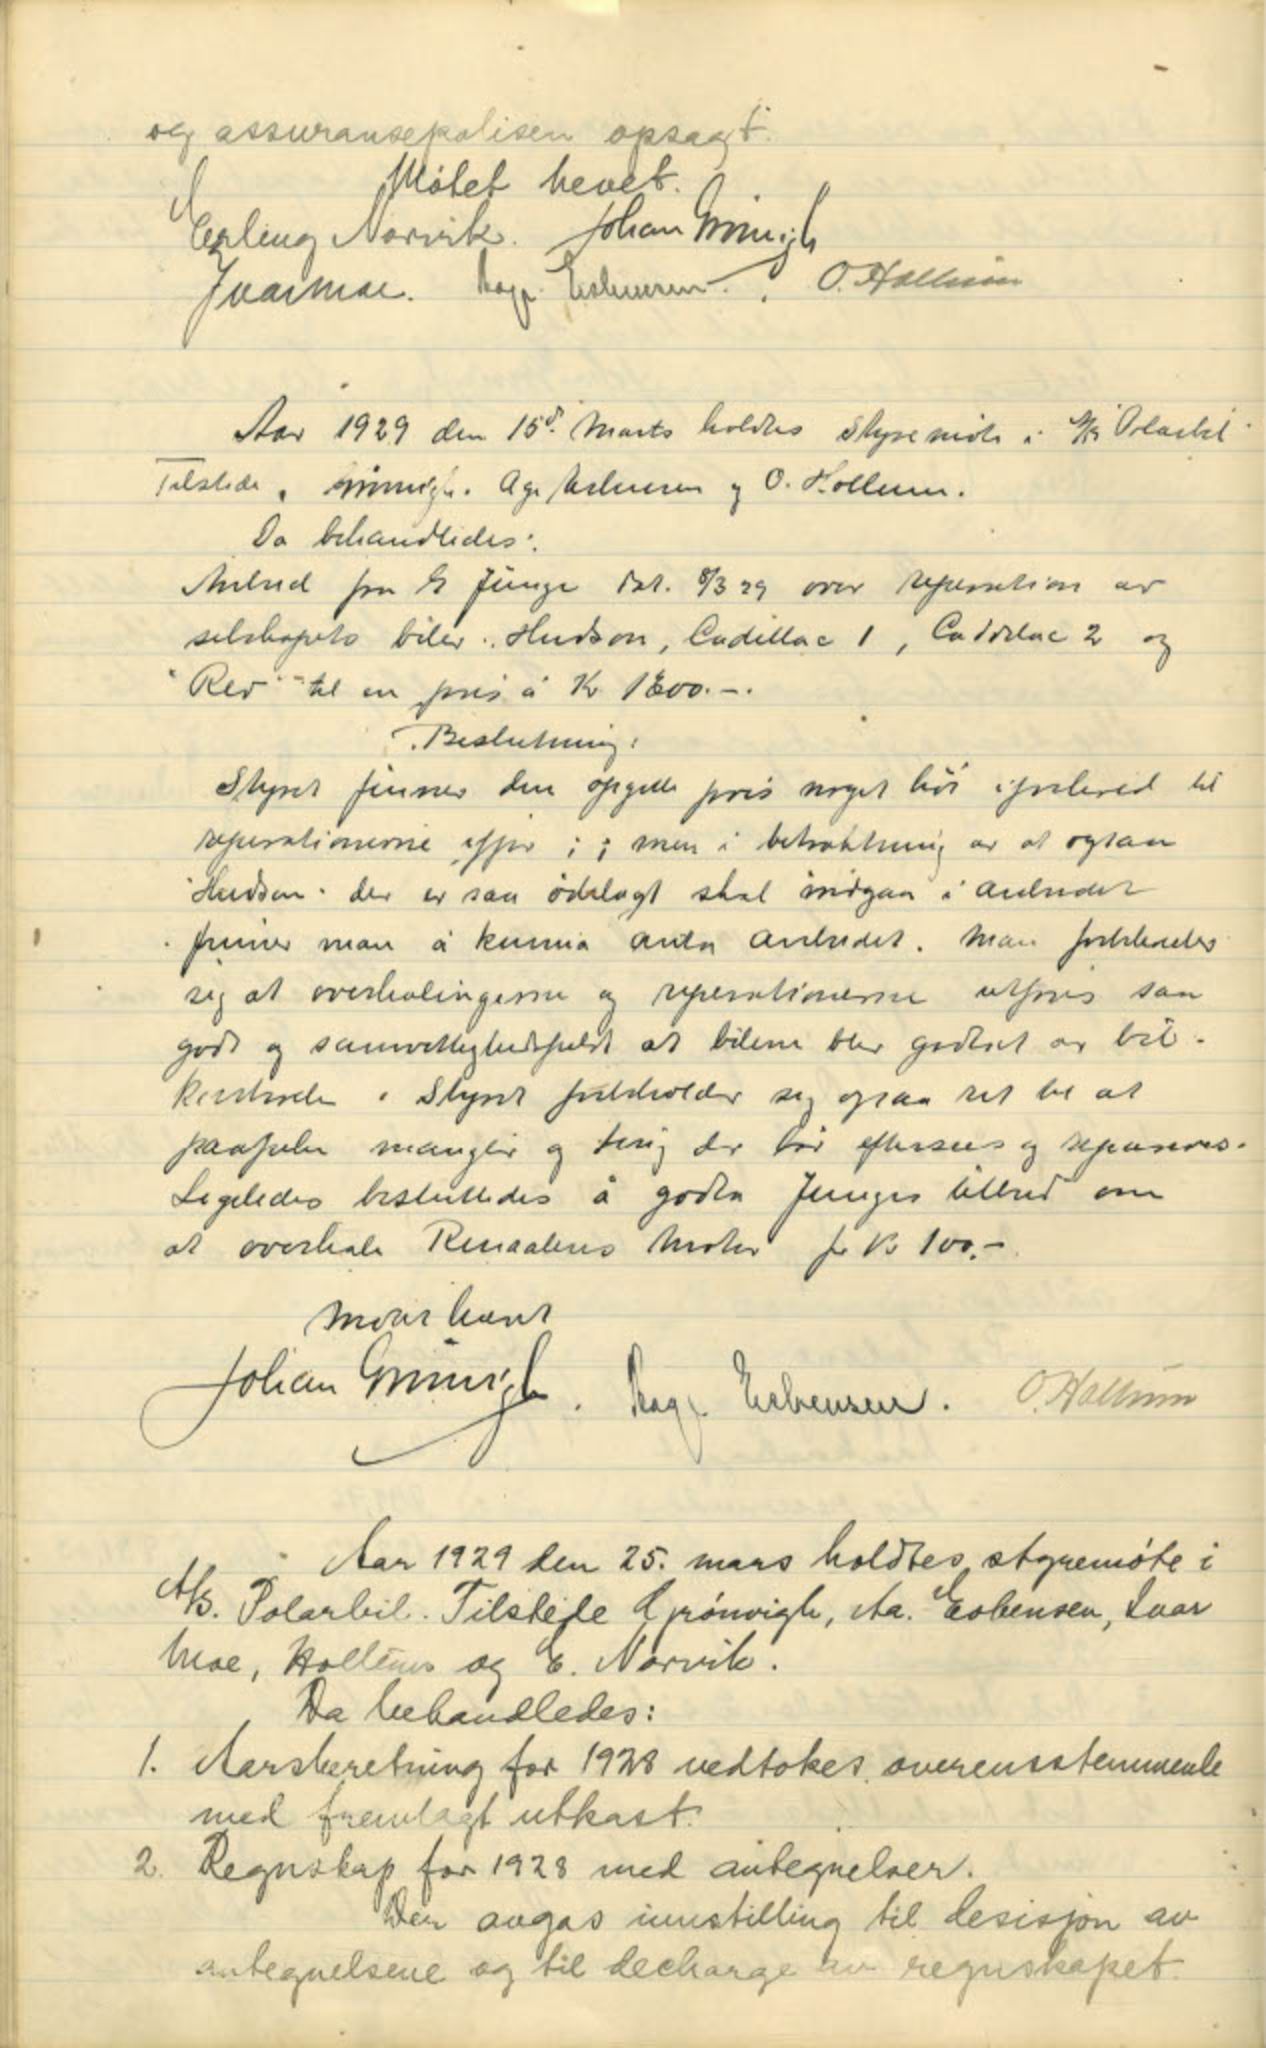 og assuransepolisen opsagt.
Møtet hevet.
Erling Norvik. Johan Grønvigh
Ivar Moe. Aage Esbensen. O. Hollum
Aar 1929 den 15d. Marts holdtes Styremøte i A/S Polarbil
Tilstede, Grønvigh. Age Esbensen og O. Hollum.
Da behandledes:
Anbud fra Junge dat. 8/3 29 over reperation av
selskapets biler: Hudson, Cadillac 1, Caddilac 2 og
"Reo" til en pris å Kr 1800.-.
Beslutning:
Styret finner den opgitte pris noget høi i forhold til
reperationerne ; men i betraktning av at ogsaa
"Hudson" der er saa ødelagt skal indgaa i anbudet
finner man å kunna anta anbudet. Man forbeholder
sig at overhalingerne og reperationerne utføres saa
godt og samvittighedsfuldt at bilene blir godtat av bil-
kontrolen. Styret forbeholder sig ogsaa ret til at
paapeke mangler og ting der bør eftersees og repareres.
Ligeledes besluttedes å godta Junges tilbud om
at overhale Renaultens Motor for Kr 100.-
Møtet hævet
Johan Grønvigh. Aage Esbensen. O. Hollum
Aar 1929 den 25. mars holdtes styremøte i
A/S. Polarbil. Tilstede Grønvigh, Aa. Esbensen, Ivar
Moe, Hollum og E. Norvik.
Da behandledes:
1. Aarsberetning for 1928 vedtokes overensstemmende
med fremlagt utkast.
2. Regnskap for 1928 med antegnelser.
Der avgas innstilling til desisjon av
antegnelsene og til decharge av regnskapet.